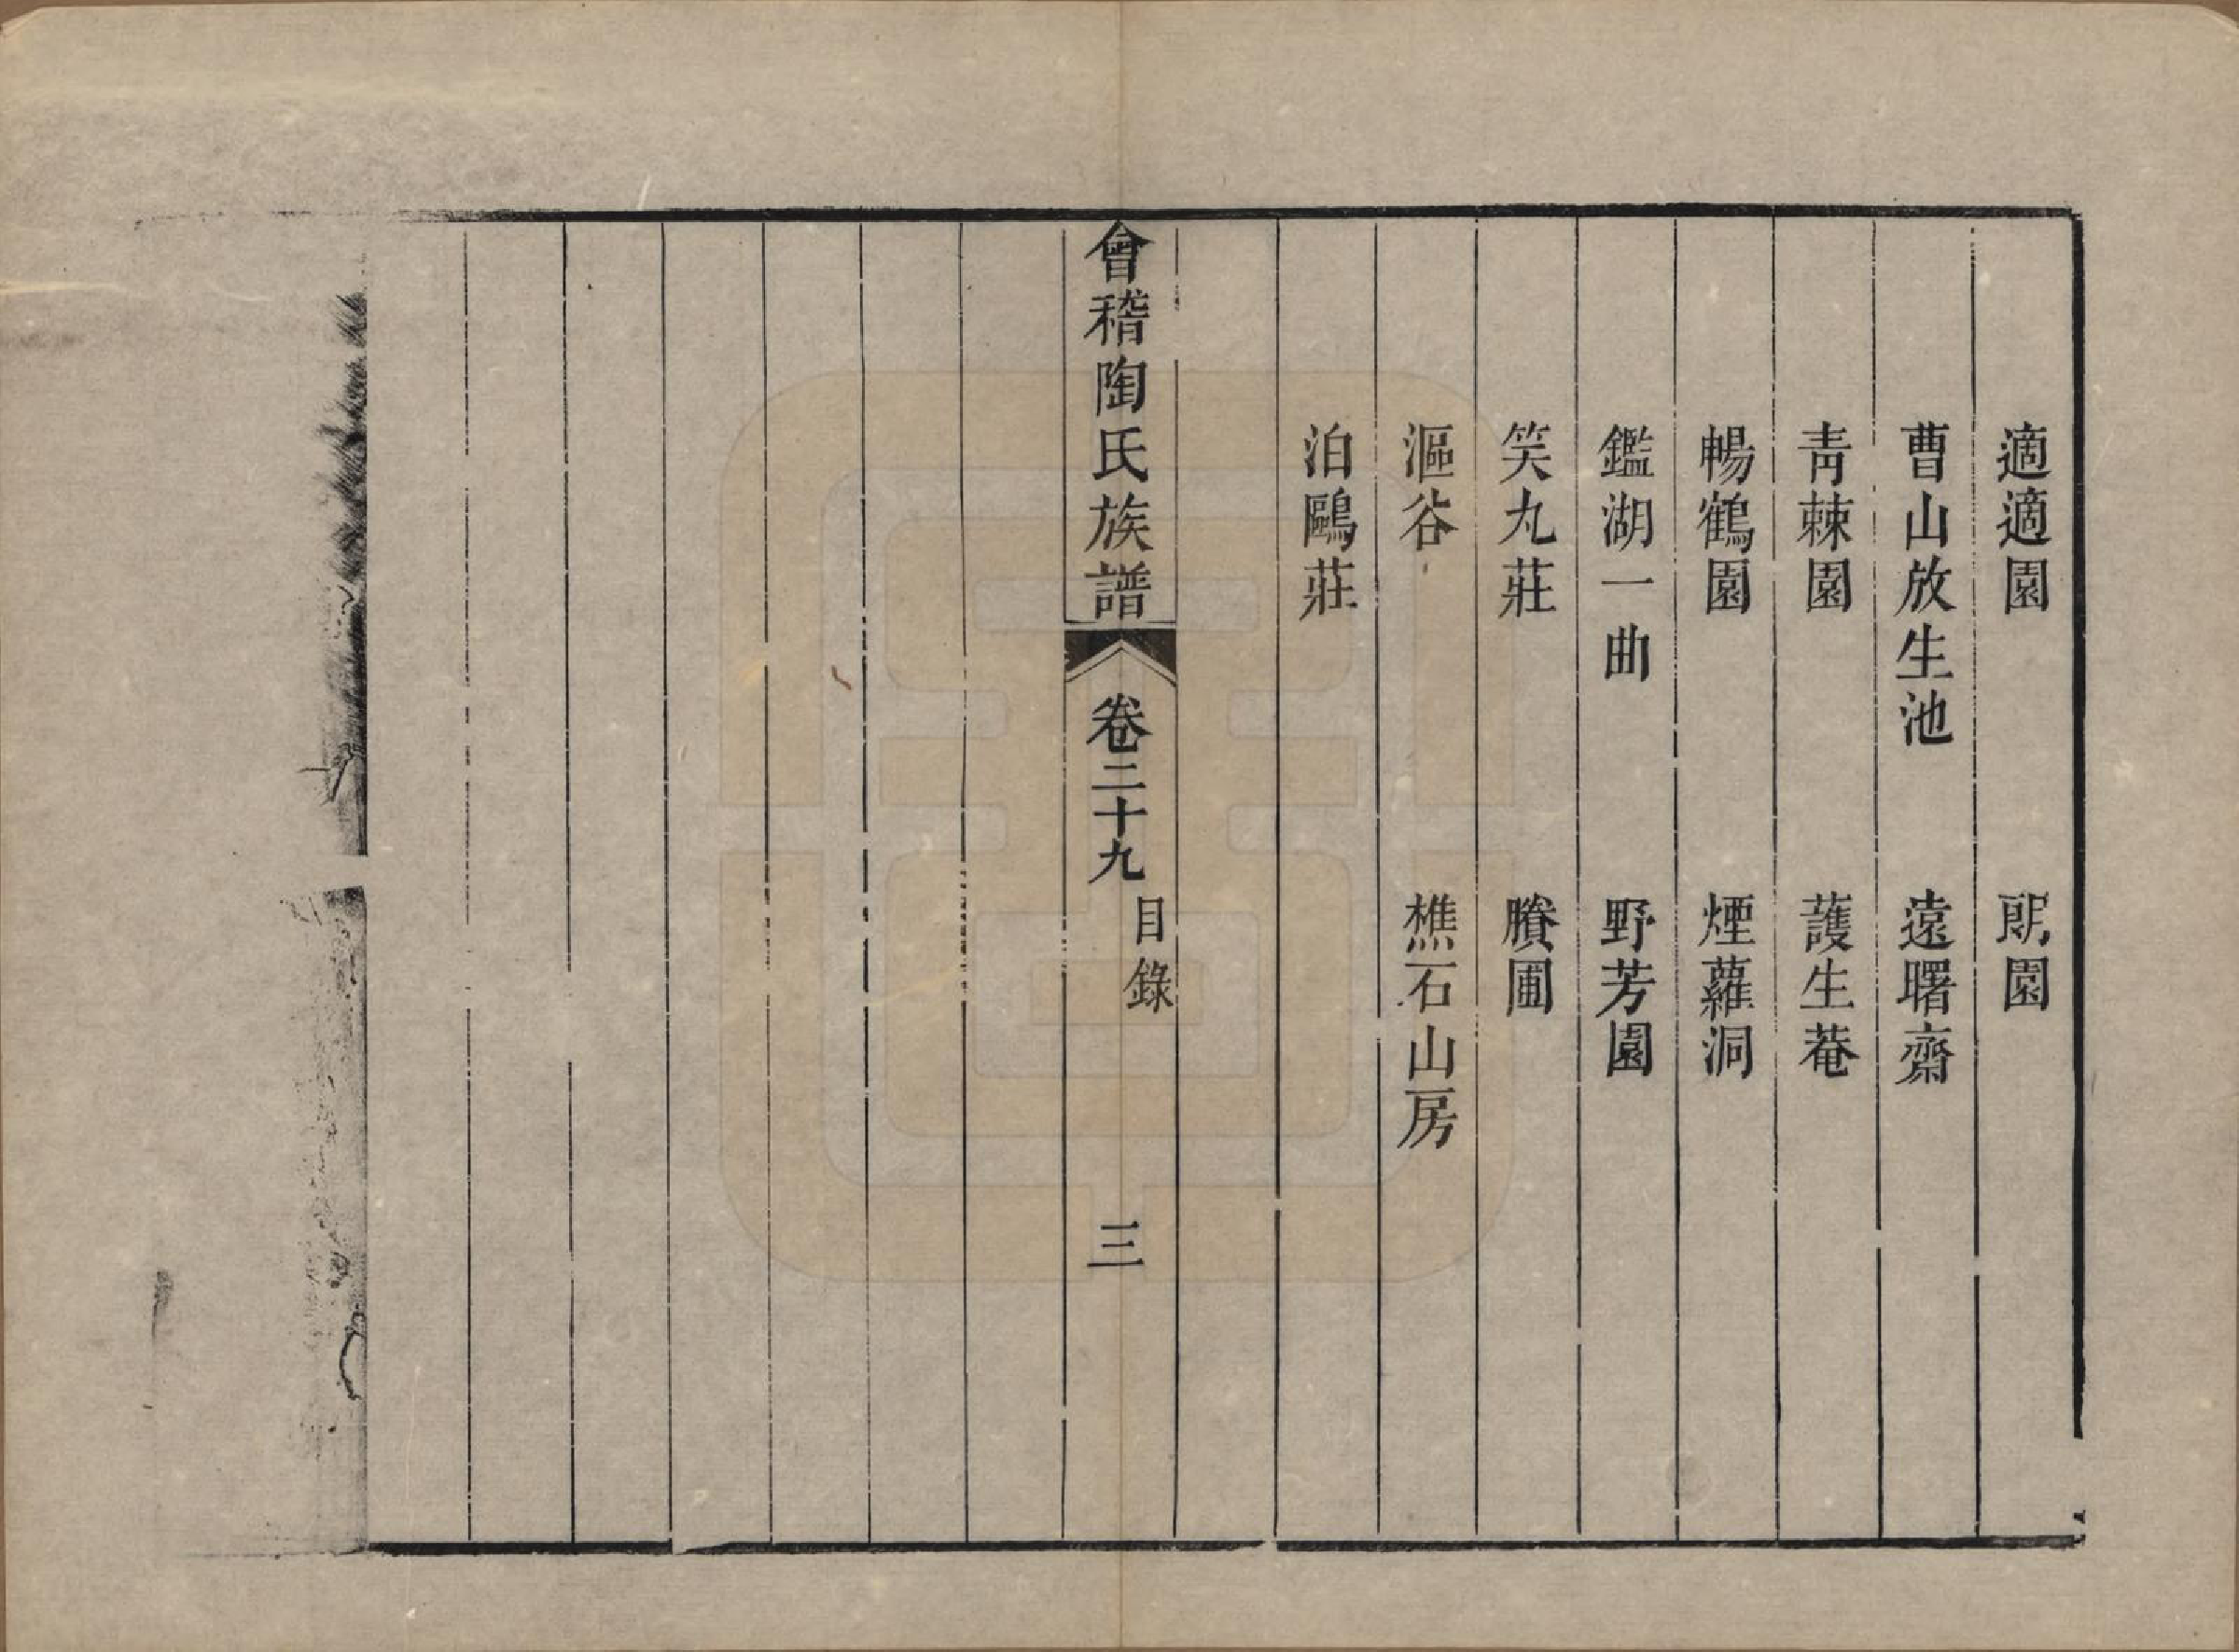 適適園　朗園
曹山放生池　遠曙齋
青棘園　護生菴
暢鶴園　煙蘿洞
鑑湖一曲　野芳園
笑丸莊　賸圃
漚谷　樵石山房
泊鷗莊
會稽陶氏族譜　卷二十九　目錄　三